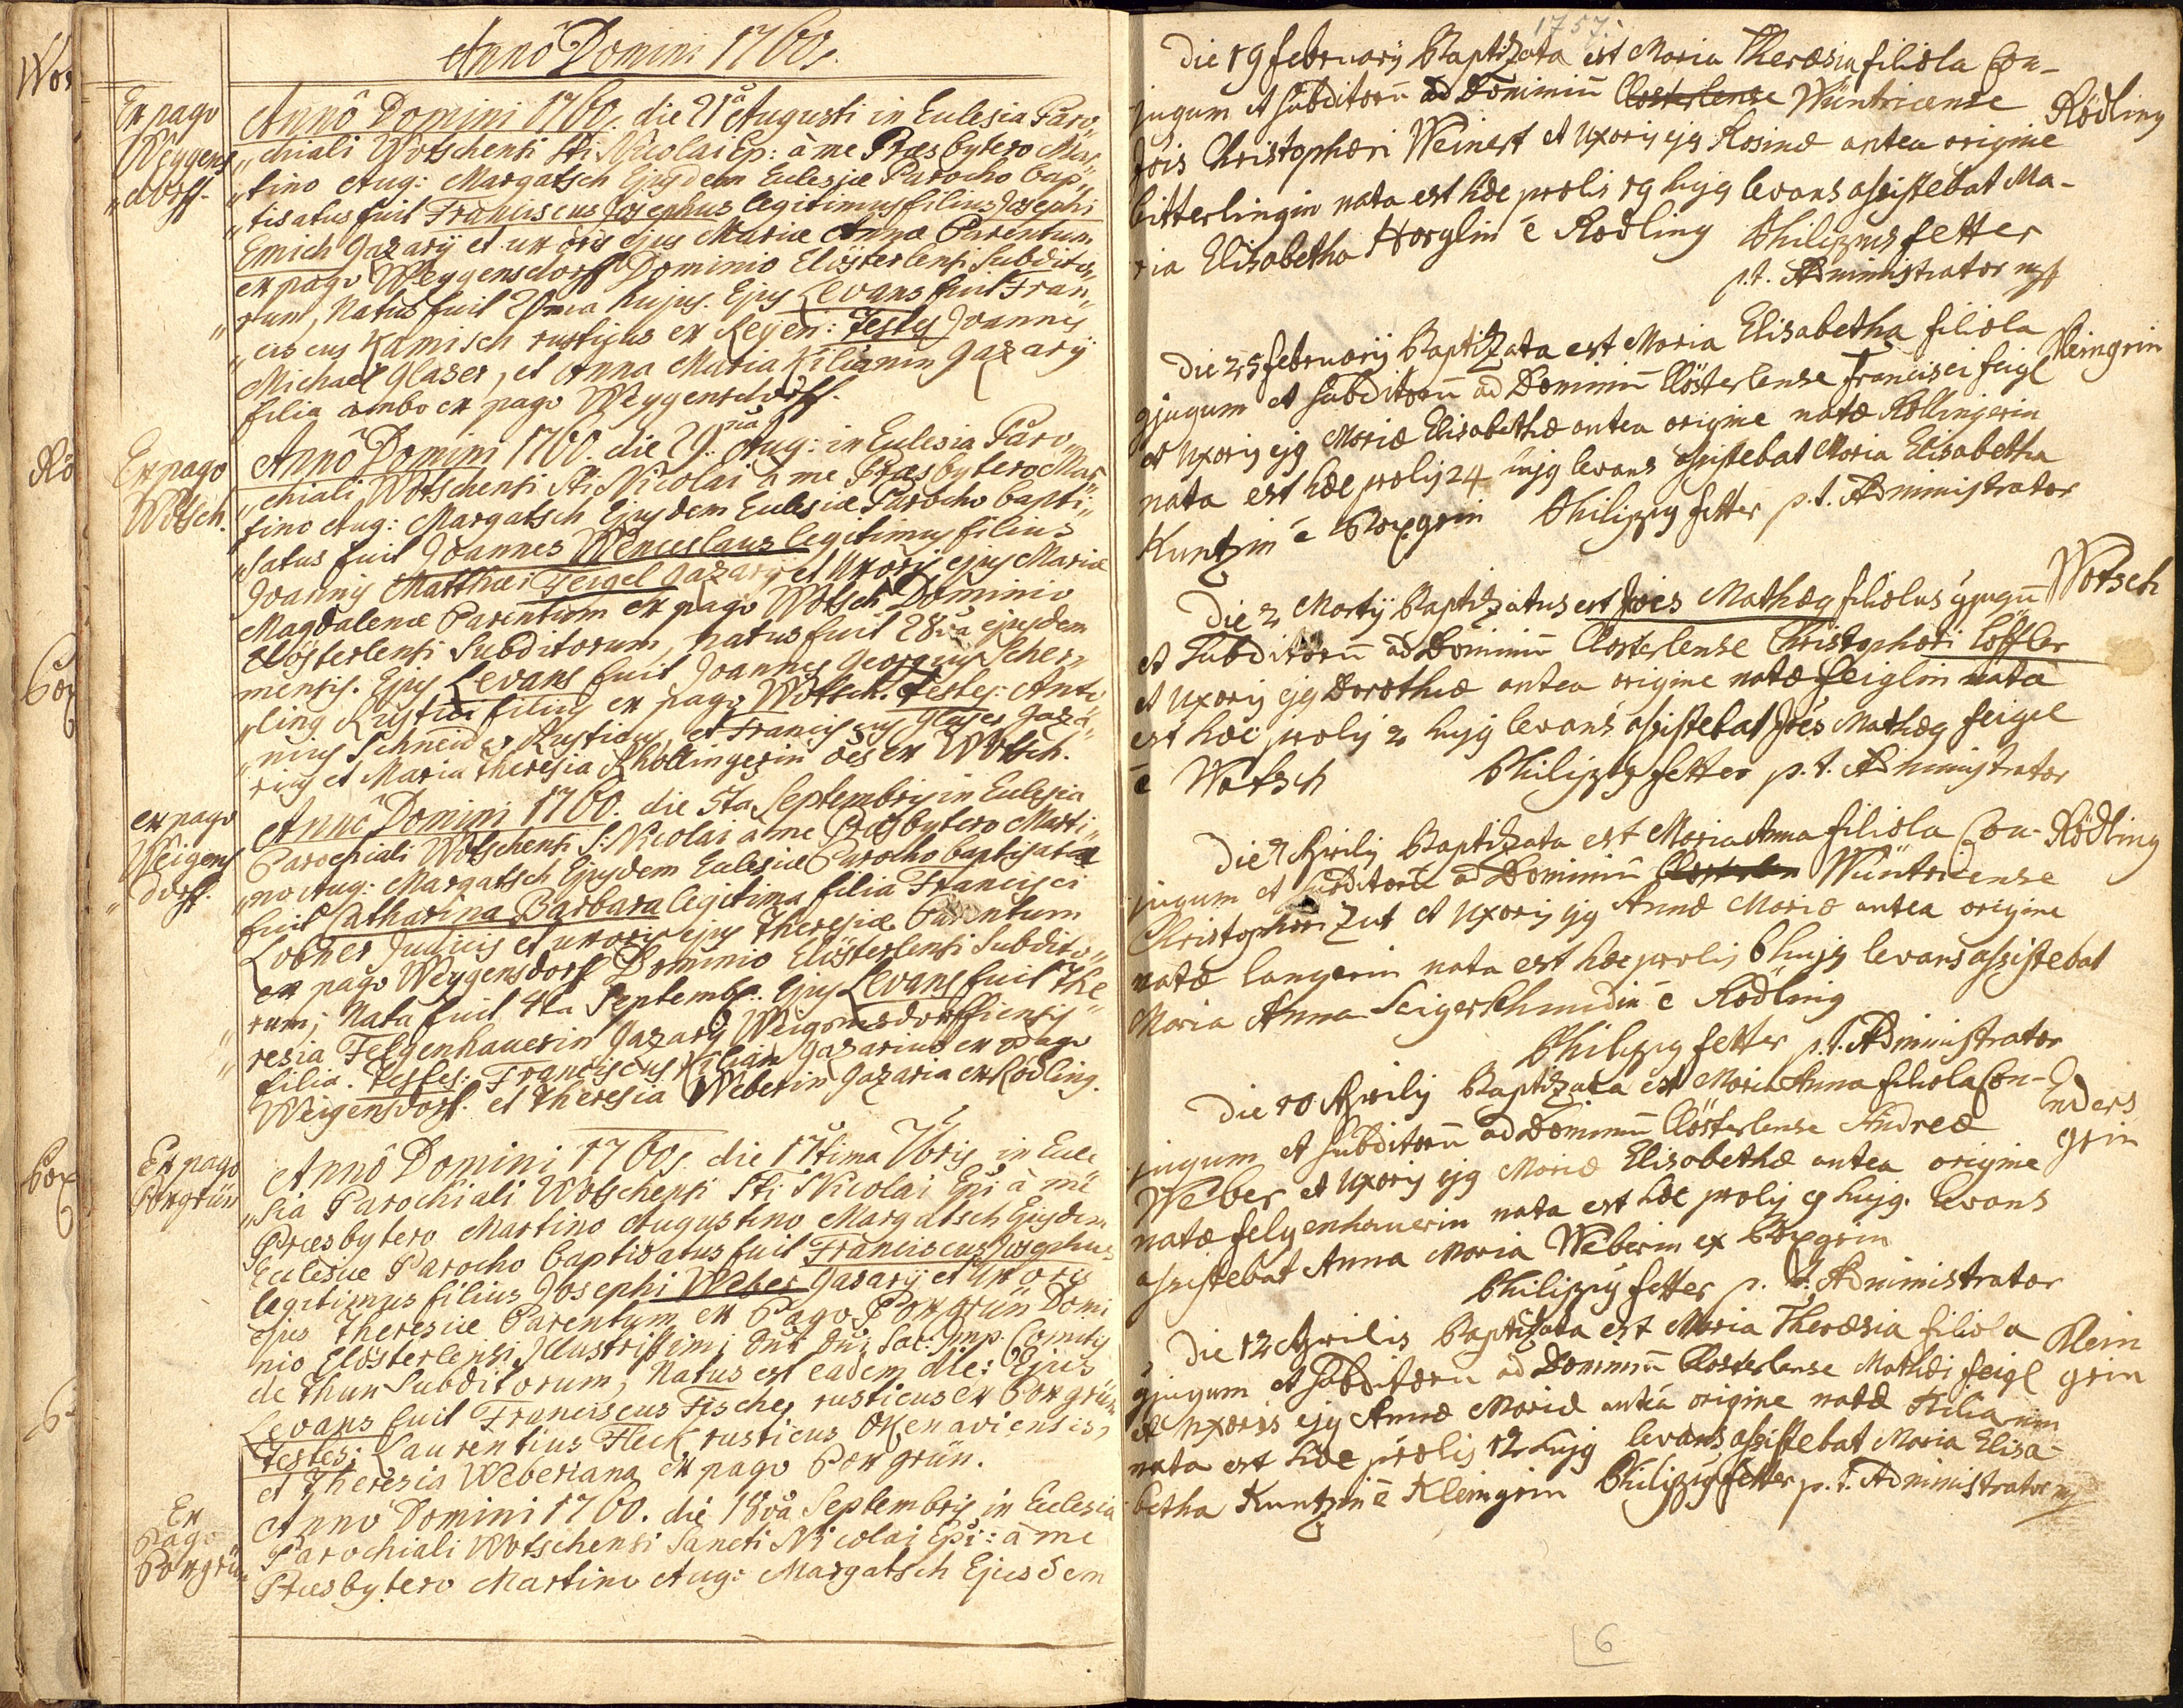 Annô Domini 1760.
Ex pago
Weygens
„dorff.
Annô Domini 1760. die 21â Augusti in Eclesia Paro„
„chiali Wotschensi Sti Nicolai Ep: à me Præsbytero Mar„
„tino Aug: Margatsch Ejusdem Eclesiæ Parocho bap„
„tisatus fuit Franciscus Josephus legitimus filius Josephi
Emich Gazarÿ et uxoris ejus Mariæ Annæ Parentum
ex pago Weygensdorff Dominio Clösterlensi Subdito„
„rum, Natus fuit hujus. Ejus Levans fuit Fran„
„ciscus Kamisch rusticus ex Reÿen: Testes Joannes
Michael Glaser, et Anna Maria Kilianin Gazarÿ
filia ambo ex pago Weygensdorff.
Ex pago
Wotsch.
Annô Domini 1760. die 29. Aug: in Eclesia Paro„
„chiali Wotschensi Sti Nicolai à me Præsbytero Mar„
tino Aug: Margatsch Ejusdem Eclesiæ Parocho bapti„
„satus fuit Joannes Wenceslaus legitimus filius
Joannis Matthæi Feigel Gazarÿ et Uxoris ejus Mariæ
Magdalenæ Parentum ex pago Wotsch Dominio
Clösterlensi Subditorum, natus fuit 28va ejusdem
mensis. Ejus Levans fuit Joannes Georgius Scher„
„ling Rustici filius ex pago Wotsch. Testes: Anto„
„nius Schneider Rusticus, et Franciscus Glaser Gaza„
rius et Maria Theresia Khollingerin oes ex Wotsch.
ex pago
Weigens
„dorff.
Annô Domini 1760. die 5ta Septembris in Eclesia
Parochiali Wotschensi S: Nicolai à me Præsbytero Marti„
„no Aug: Margatsch Ejusdem Eclesiæ Parocho baptisata
fuit Catharina Barbara legitima filia Francisci
Lobner Judicis et uxoris ejus Theresiæ Parentum
ex pago Weygensdorff Dominio Clösterlensi Subdito„
„rum; Nata fuit 4ta Septembr. Ejus Levans fuit The„
„resia Felgenhauerin Gazarÿ Weigensdorffiensis
filia. Testes: Franciscus Kilian Gazarius ex pago
Weigensdorf. et Theresia Weberin Gazaria ex Rödling.
Ex pago
Poxgrün
Annô Domini 1760. die 17tima 7bris in Ecle„
„sia Parochiali Wotschensi Sti Nicolai Epi à me
Præsbytero Martino Augustino Margatsch Ejusdem
Eclesiæ Parocho baptisatus fuit Franciscus Josephus
legitimus filius Josephi Weber Gazarÿ et Uxoris
ejus Theresiæ Parentum ex Pago Poxgrün Domi
nio Clösterlensi, Illustrissimi Dni Dni Sac: Imp. Comitis
de Thun Subditorum; Natus est eadem die: Ejus
Levans fuit Franciscus Fischer rusticus ex Poxgrün
Testes: Laurentius Fleck rusticus Okenaviensis,
et Theresia Weberiana ex pago Poxgrün.
Ex
Pago
Poxgrün
Annô Domini 1760. die 18va Septembris in Eclesia
Parochiali Wotschensi Sancti Nicolai Epi: à me
Præsbytero Martino Aug: Margatsch Ejusdem
1757.
Die 19 februarÿ Baptizata est Maria Theræsia filiola Con-
jugum et subditorū ad Dominiū Closterlense Wüntricense Rödling
Jois Christophori Weinert et Uxoris ejs Rosinæ antea origine
bitterlingin nata est hæc prolis 19 hujs levans assistebat Ma-
ria Elisabetha Horglin è Rodling Philippus fetter
p.t. Administrator
Die 25 februarÿ Baptizata est Maria Elisabetha filiola Kleingrin
gjugum et subditorū ad Dominiū Clösterlense Francisci feigl
et Uxoris ejs Mariæ Elisabethæ antea origine natæ Kollingerin
nata est hæc prolis 24 hujs levans assistebat Maria Elisabetha
Kuntzin è Poxgrin Philippus fetter p.t. Administrator
Die 2 Martÿ Baptizatus est Joes Mathæus filiolus gjugū Wotsch
et Subditorū ad Dominiū Closterlense Christophori Löffler
et Uxoris ejs Dorotheæ antea origine natæ feiglin nata
est hæc prolis 2 hujs levans assistebat Joes Mathæus feigel
è Wotsch Philippus fetter p.t. Administrator
Die 7 Aprilis Baptizata est Maria Anna filiola Con- Rödling
jugum et subditorū ad Dominiū Closterlen Wüntricense
Christophori Zut et Uxoris ejs Annæ Mariæ antea origine
natæ langerin nata est hæc prolis 6 hujs levans assistebat
Maria Anna Seigerschmidin è Rodling
Philippus fetter p.t. Administrator
Die 10 Aprilis Baptizata est Maria Anna filiola Con- Enders
jugum et subditorū ad Dominiū Clösterlense Andreæ grin
Weber et Uxoris ejs Mariæ Elisabethæ antea origine
natæ felgenhauerin nata est hæc prolis 9 hujs. levans
assistebat Anna Maria Weberin ex Poxgrin
Philippus fetter p. t. Administrator
Die 12 Aprilis Baptizata est Maria Theræsia filiola Klein
gjugum et subditorū ad Dominiū Closterlense Mathæi feigl grin
et Uxoris ejs Annæ Mariæ antea origine natæ Kilianin
nata est hæc prolis 12 hujs levans assistebat Maria Elisa-
betha Kuntzin è Kleingrin Philippus fetter p.t. Administrator
6